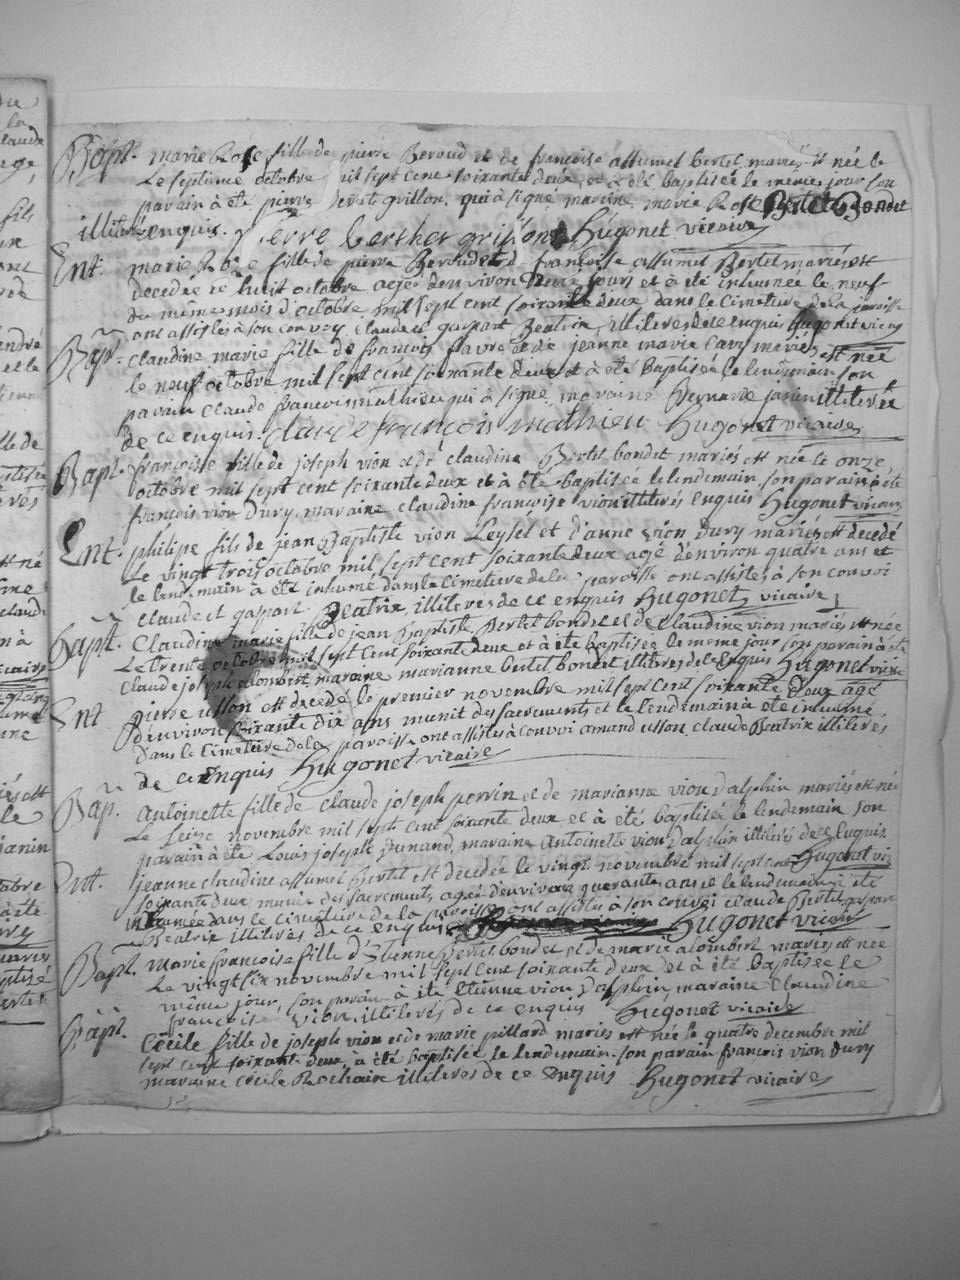 Bapt. marie Rose fille de pierre Beroud et de françoise assumel Bertet mariés est née le
Le septieme octobre mil sept cent soixante deux, et a été baptisée le même jour son
parain à été pierre Bertet grillon, qui à signé maraine marie Rose Bertet Bondet
illiterés enquis. pierre berthet grillon Hugonet vicaire
Ent. marie Rose fille de pierre Beroud et d françoise assumel Bertet mariés est
decedée ce huit octobre agée denviron deux jours et à été inhumée le neuf
du même mois d'octobre mil sept cent soixante deux dans le cimetiere de la paroisse
ont assistés à son convoy Claude et gaspart Beatrix, illiterés de ce enquis Hugonet vicaire
Bapt. Claudine marie fille de françois favre et de jeanne marie mariés est née
le neuf octobre mil sept cent soixante deux et à été Baptisée le lendemain son
parain Claude françois mathieu qui à signé, maraine Bernarde janin illiterée
de ce enquis. Claude françois mathieu Hugonet vicaire
Bapt. françoise fille de joseph vion et de claudine Bertet bondet mariés est née le onze
octobre mil sept cent soixante deux et à été baptisée le lendemain, son parain à été
françois vion Dury, maraine claudine françoise vion illiterés enquis Hugonet vicaire
Ent. philipe fils de jean Baptiste vion Leysel et d'anne vion Dury mariés est decedé
Le vingt trois octobre mil sept cent soixante deux agé d'environ quatre ans et
le lendemain à été inhumé dans le cimetiere de la paroisse ont assistés à son convoi
claude et gaspart Beatrix illiterés de ce enquis Hugonet vicaire
Bapt. Claudine marie fille de jean Baptiste Bertet bondet et de Claudine vion mariés est née
Le trente octobre mil sept cent soixante deux et à été baptisée le meme jour son parain à été
Claude joseph alombert, maraine marianne bertet bondet illiterés de ce enquis Hugonet vicaire
Ent pierre usson est decedé le premier novembre mil sept cent soixante deux agé
d'environ soixante dix ans munit des sacrements et le lendemain à été inhumé
Dans le Cimetiere de la paroisse ont assistés à convoi amand usson, claude Beatrix illiterés
de ce enquis Hugonet vicaire
Bap. Antoinette fille de claude joseph perrin et de marianne vion d'alphin mariés est née
Le seize novembre mil sept cent soixante deux et à été baptisée le lendemain son
parain à été Louis joseph humand, maraine Antoinette vion Dalphin illiterés de ce Enquis
Ent. jeanne claudine assumel Bertet est decedée le vingt novembre mil sept cent Hugonet vic
soixante deux munie des sacrements agée d'environ quarante ans et le lendemain à été
inhumée dans le cimetiere de la paroisse ont assistés à son convoi claude Bertet, gaspart
Beatrix illiterés de ce enquis Hugonet vicaire
Bapt. Marie françoise fille d'Etienne Bertet bondet et de marie alombert mariés est née
Le vingt six novembre mil sept cent soixante deux et à été baptisée le
même jour, son parain à été Etienne vion Dalphin, maraine Claudine
françoise vion illiterés de ce enquis Hugonet vicaire
Bapt. Cécile fille de joseph vion et de marie pillard mariés est née le quatre decembre mil
sept cent soixante deux, à été baptisée le lendemain. son parain françois vion Dury
maraine Cécile Rochaix illiterés de ce enquis Hugonet vicaire